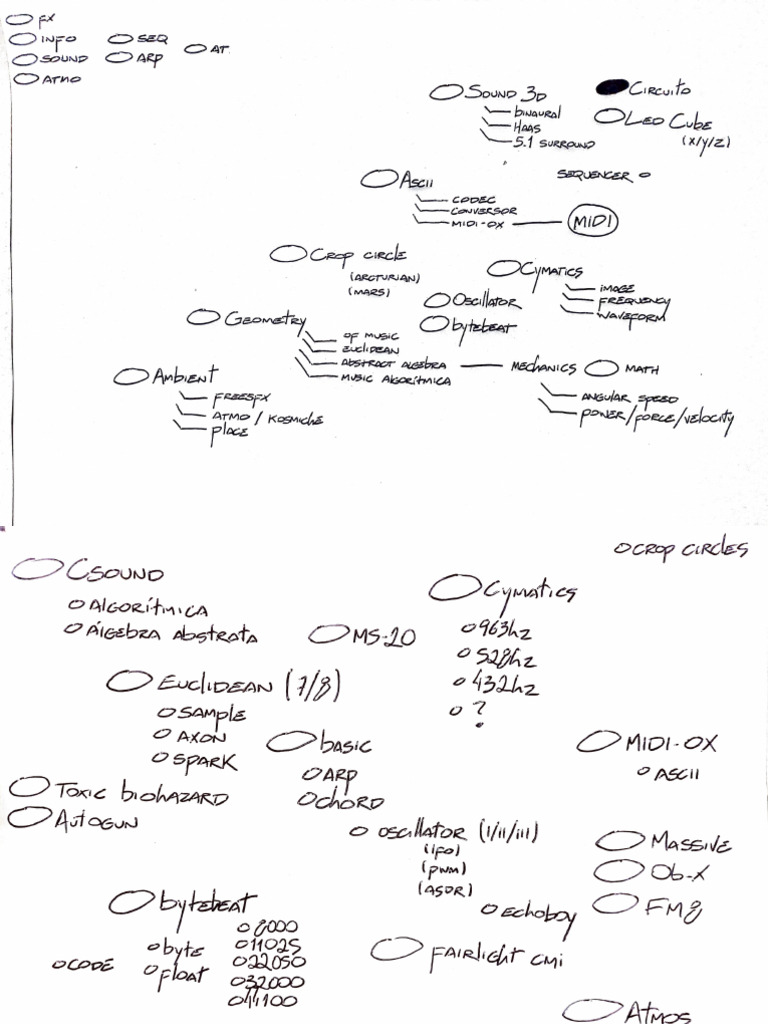 FX
INFO
SEQ
AT.
SOUND
ARP
ATMO
SOUND 3D
BINAURAL
HAAS
5.1 SURROUND
CIRCUITO
LED CUBE
(X/Y/Z)
SEQUENCER
ASCII
CODEC
CONVERSOR
MIDI-OX
MIDI
CROP CIRCLE
(ARCTURIAN)
(MARS)
CYMATICS
IMAGE
FREQUENCY
WAVEFORM
OSCILLATOR
BYTEBEAT
GEOMETRY
OF MUSIC
EUCLIDEAN
ABSTRACT ALGEBRA
MUSIC ALGORÍTMICA
MECHANICS
MATH
ANGULAR SPEED
POWER/FORCE/VELOCITY
AMBIENT
FREESFX
ATMO / KOSMICHE
PLACE
CROP CIRCLES
CSOUND
ALGORÍTMICA
ÁLGEBRA ABSTRATA
CYMATICS
963hz
528hz
432hz
?
MS-20
EUCLIDEAN (7/8)
SAMPLE
AXON
SPARK
BASIC
ARP
CHORD
MIDI-OX
ASCII
TOXIC BIOHAZARD
AUTOGUN
OSCILLATOR (I/II/III)
(LFO)
(PWM)
(ASDR)
MASSIVE
OB-X
FM8
ECHOBOY
BYTEBEAT
CODE
BYTE
FLOAT
8000
11025
22050
32000
44100
FAIRLIGHT CMI
ATMOS